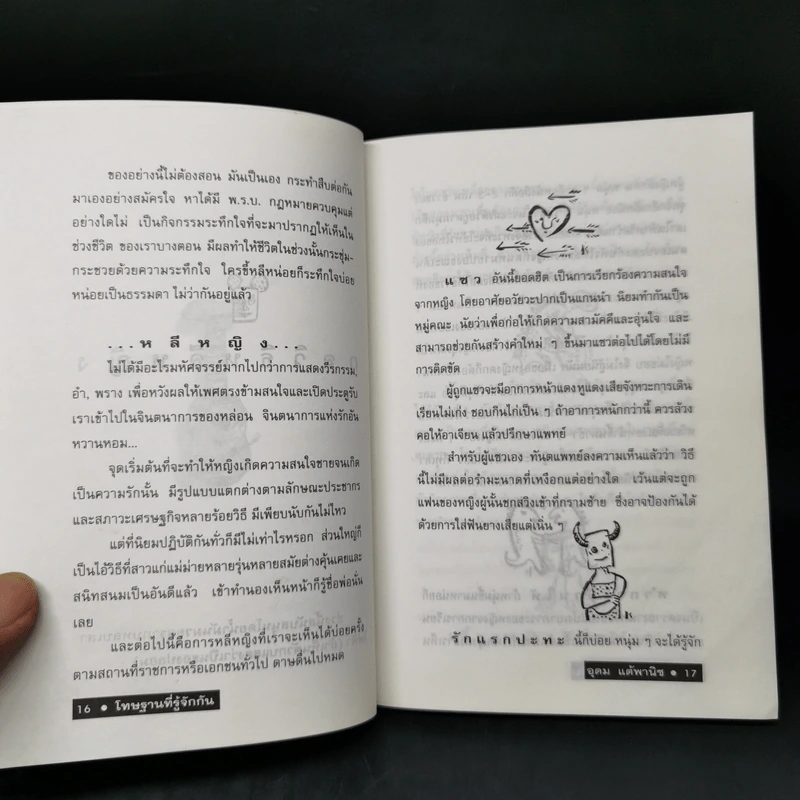 ของอย่างนี้ไม่ต้องสอน มันเป็นเอง กระทำสืบต่อกัน
มาเองอย่างสมัครใจ หาได้มี พ.ร.บ. กฎหมายควบคุมแต่
อย่างใดไม่ เป็นกิจกรรมระทึกใจที่จะมาปรากฏให้เห็นใน
ช่วงชีวิต ของเราบางตอน มีผลทำให้ชีวิตในช่วงนั้นกระชุ่ม-
กระชวยด้วยความระทึกใจ ใครขี้หลีหน่อยก็ระทึกใจบ่อย
หน่อยเป็นธรรมดา ไม่ว่ากันอยู่แล้ว
...หลีหญิง...
ไม่ได้มีอะไรมหัศจรรย์มากไปกว่าการแสดงวีรกรรม,
อำ, พราง เพื่อหวังผลให้เพศตรงข้ามสนใจและเปิดประตูรับ
เราเข้าไปในจินตนาการของหล่อน จินตนาการแห่งรักอัน
หวานหอม...
จุดเริ่มต้นที่จะทำให้หญิงเกิดความสนใจชายจนเกิด
เป็นความรักนั้น มีรูปแบบแตกต่างตามลักษณะประชากร
และสภาวะเศรษฐกิจหลายร้อยวิธี มีเพียบนับกันไม่ไหว
แต่ที่นิยมปฏิบัติกันทั่วก็มีไม่เท่าไรหรอก ส่วนใหญ่ก็
เป็นไอ้วิธีที่สาวแก่แม่ม่ายหลายรุ่นหลายสมัยต่างคุ้นเคยและ
สนิทสนมเป็นอันดีแล้ว เข้าทำนองเห็นหน้าก็รู้ชื่อพ่อนั่น
เลย
และต่อไปนี้คือการหลีหญิงที่เราจะเห็นได้บ่อยครั้ง
ตามสถานที่ราชการหรือเอกชนทั่วไป ดาษดื่นไปหมด
16 • โทษฐานที่รู้จักกัน
แซว อันนี้ยอดฮิต เป็นการเรียกร้องความสนใจ
จากหญิง โดยอาศัยอวัยวะปากเป็นแกนนำ นิยมทำกันเป็น
หมู่คณะ นัยว่าเพื่อก่อให้เกิดความสามัคคีและอุ่นใจ และ
สามารถช่วยกันสร้างคำใหม่ ๆ ขึ้นมาแซวต่อไปได้โดยไม่มี
การติดขัด
ผู้ถูกแซวจะมีอาการหน้าแดงหูแดงเสียจังหวะการเดิน
เรียนไม่เก่ง ชอบกินไก่เป็น ๆ ถ้าอาการหนักกว่านี้ ควรล้วง
คอให้อาเจียน แล้วปรึกษาแพทย์
สำหรับผู้แซวเอง ทันตแพทย์ลงความเห็นแล้วว่า วิธี
นี้ไม่มีผลต่อรำมะนาดที่เหงือกแต่อย่างใด เว้นแต่จะถูก
แฟนของหญิงผู้นั้นชกสวิงเข้าที่กรามซ้าย ซึ่งอาจป้องกันได้
ด้วยการใส่ฟันยางเสียแต่เนิ่น ๆ
รักแรกปะทะ นี้ก็บ่อย หนุ่ม ๆ จะได้รู้จัก
อุดม แต้พานิช • 17